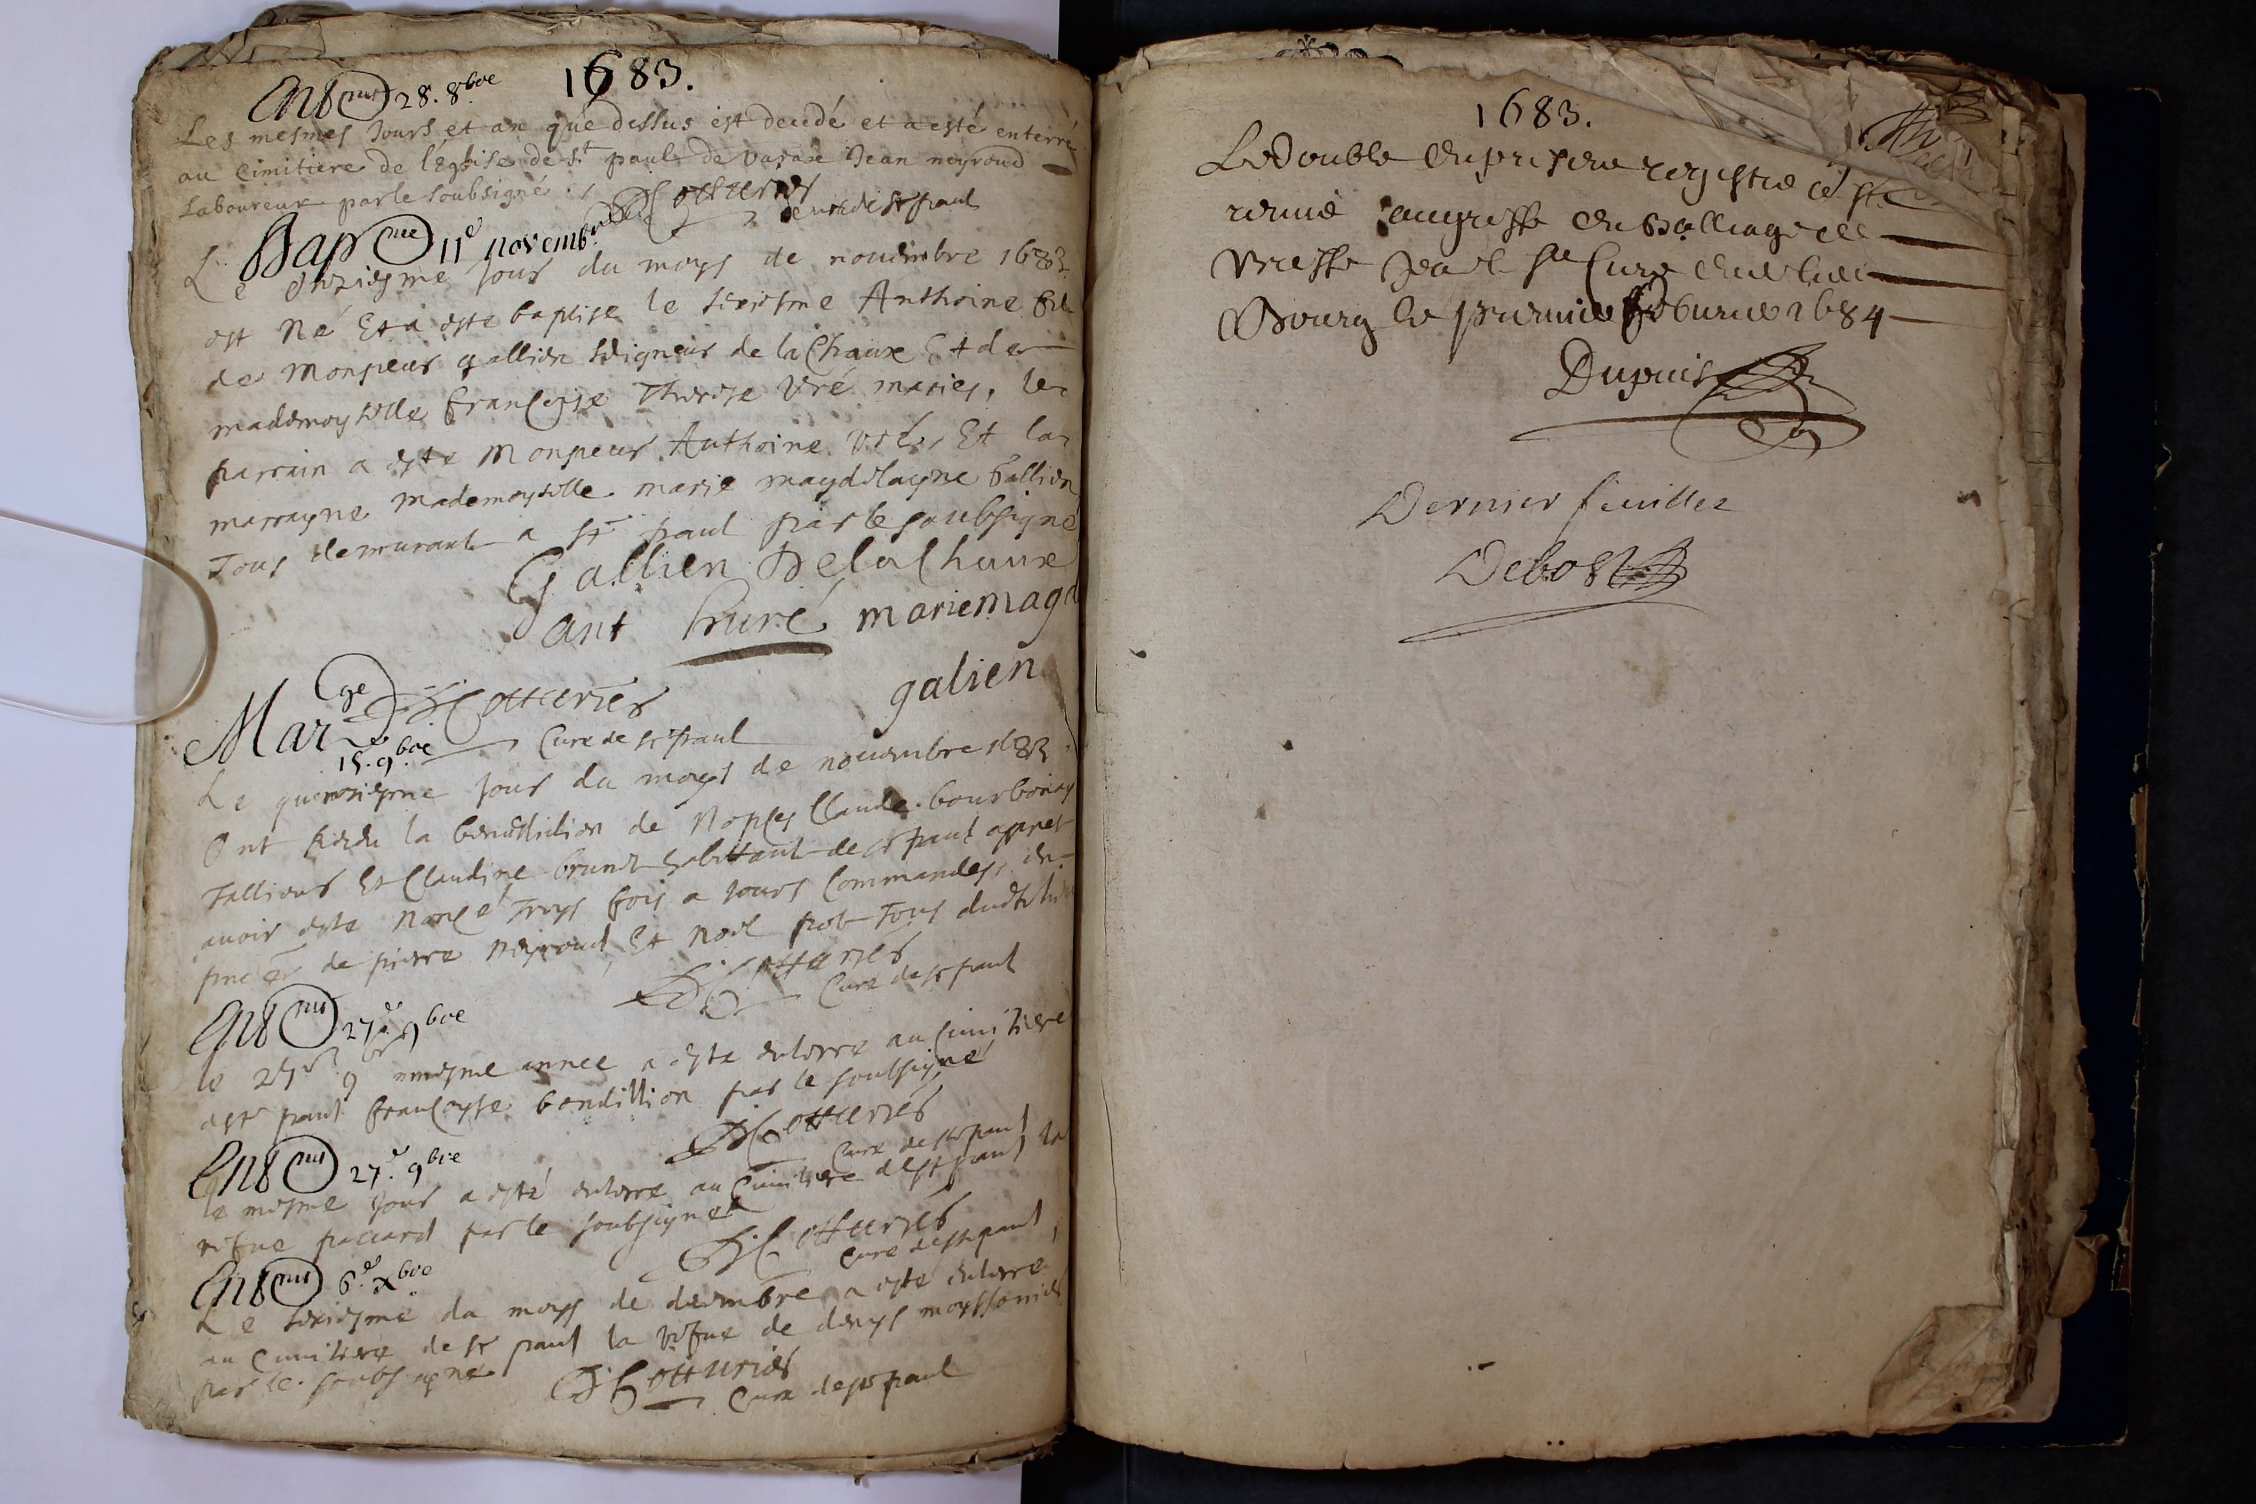 1683.
28. 8bre
Les mesmes Jours et an que dessus est decedé et a esté enterré
au Cimitiere de l'eglise de St paul de varax Jean neyroud
Laboureur par le soubsigné
Cotturier
cure de st paul
Bapme 11e novembre
Le onziesme Jour du moys de novembre 1683
est Né Et a este baptise le sexiesme Anthoine fils
de Monsieur gallien seigneur de la Chaux Et de
mademoyselle francoyse Therese Uré maries, le
parrain a este Monsieur Anthoine Uré, Et la
marrayne mademoyselle marie magdelayne Gallien
Tous demurant a st paul par le soubsigné
Gallien De la Chaux
ant huré mariemagd
galien
Marge
Cotturier
15. 9bre
Cure de st paul
Le quinziesme Jour du moys de novembre 1683
Ont the la benediction de Nopces Claude bourbon
Tallieur Et Claudine brunet habittant de st paul appres
avoir este Noncé Troys fois a Jours Commandes, en
pnce de pierre Neyroud, Et Noel Tous dudt lieu
Cotturier
Cure de st paul
27e 9bre
le 27e 9bre mesme annee a este enterre au Cimitiere
de st paul francoyse bondillion par le soubsigné
Cotturier
Cure de st paul
27e 9bre
le mesme Jour a esté enterre au Cimitiere de st paul la
vefue paccard par le soubsigné
Cotturier
Cure de st paul
6e xbre
Le sexiesme du moys de decembre a esté enterre
au Cimitiere de st paul la vefue de denys moyssonier
par le soubsigne
Cotturier
Cure de st paul
1683.
Le Double du present registre a este
remis au greffe du Balliage de
Bresse par le sr Cure dudt lieu
Bourg le premier feburier 1684
Dupuis
Dernier feuillet
Debost